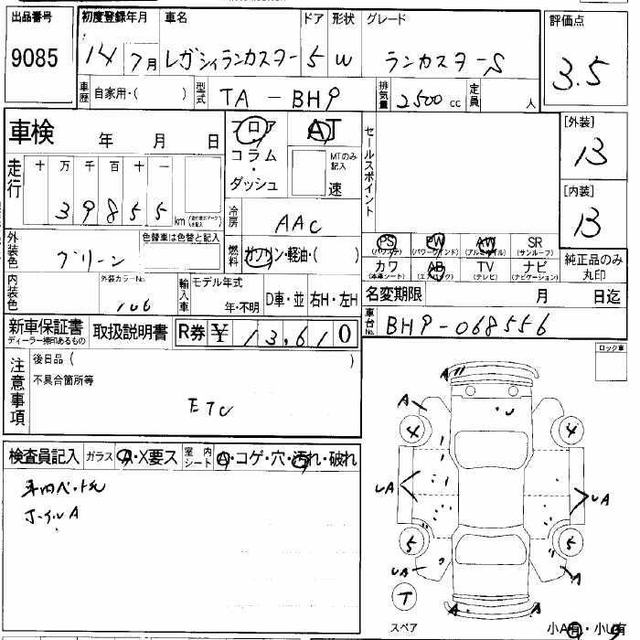 出品番号 初度登録年月 車名 ドア 形状 グレード 評価点
9085 14 7月 レガシィランカスター 5 W ランカスターS 3.5
車歴 自家用・( ) 型式 TA-BH9 排気量 2500cc 定員 人
車検 年 月 日 フロア AT セールスポイント [外装]
走行 十 万 千 百 十 一 コラム・ダッシュ MTのみ記入 速 B
39855 km [内装]
冷房 AAC B
外装色 グリーン 色替車は色替と記入 燃料 ガソリン・軽油・( ) PS (パワステ) PW (パワーウインド) AW (アルミホイル) SR (サンルーフ) 純正品のみ丸印
カワ (本革シート) AB (エアバック) TV (テレビ) ナビ (ナビゲーション)
内装色 外装カラーNo. 106 輸入車 モデル年式 年・不明 D車・並 右H・左H 名変期限 月 日迄
新車保証書 ディーラー捺印あるもの 取扱説明書 R券 ¥ 13,610 車台No. BH9-068556
注意事項 後日品( ) ロック車
不具合箇所等
ETC
検査員記入 ガラス A・X要ス 室内シート A・コゲ・穴・汚れ・破れ
車内ペット毛
ホイルA
A
A
4 4
UA UA
5 5
UA A
T
A A
スペア 小A有・小U有